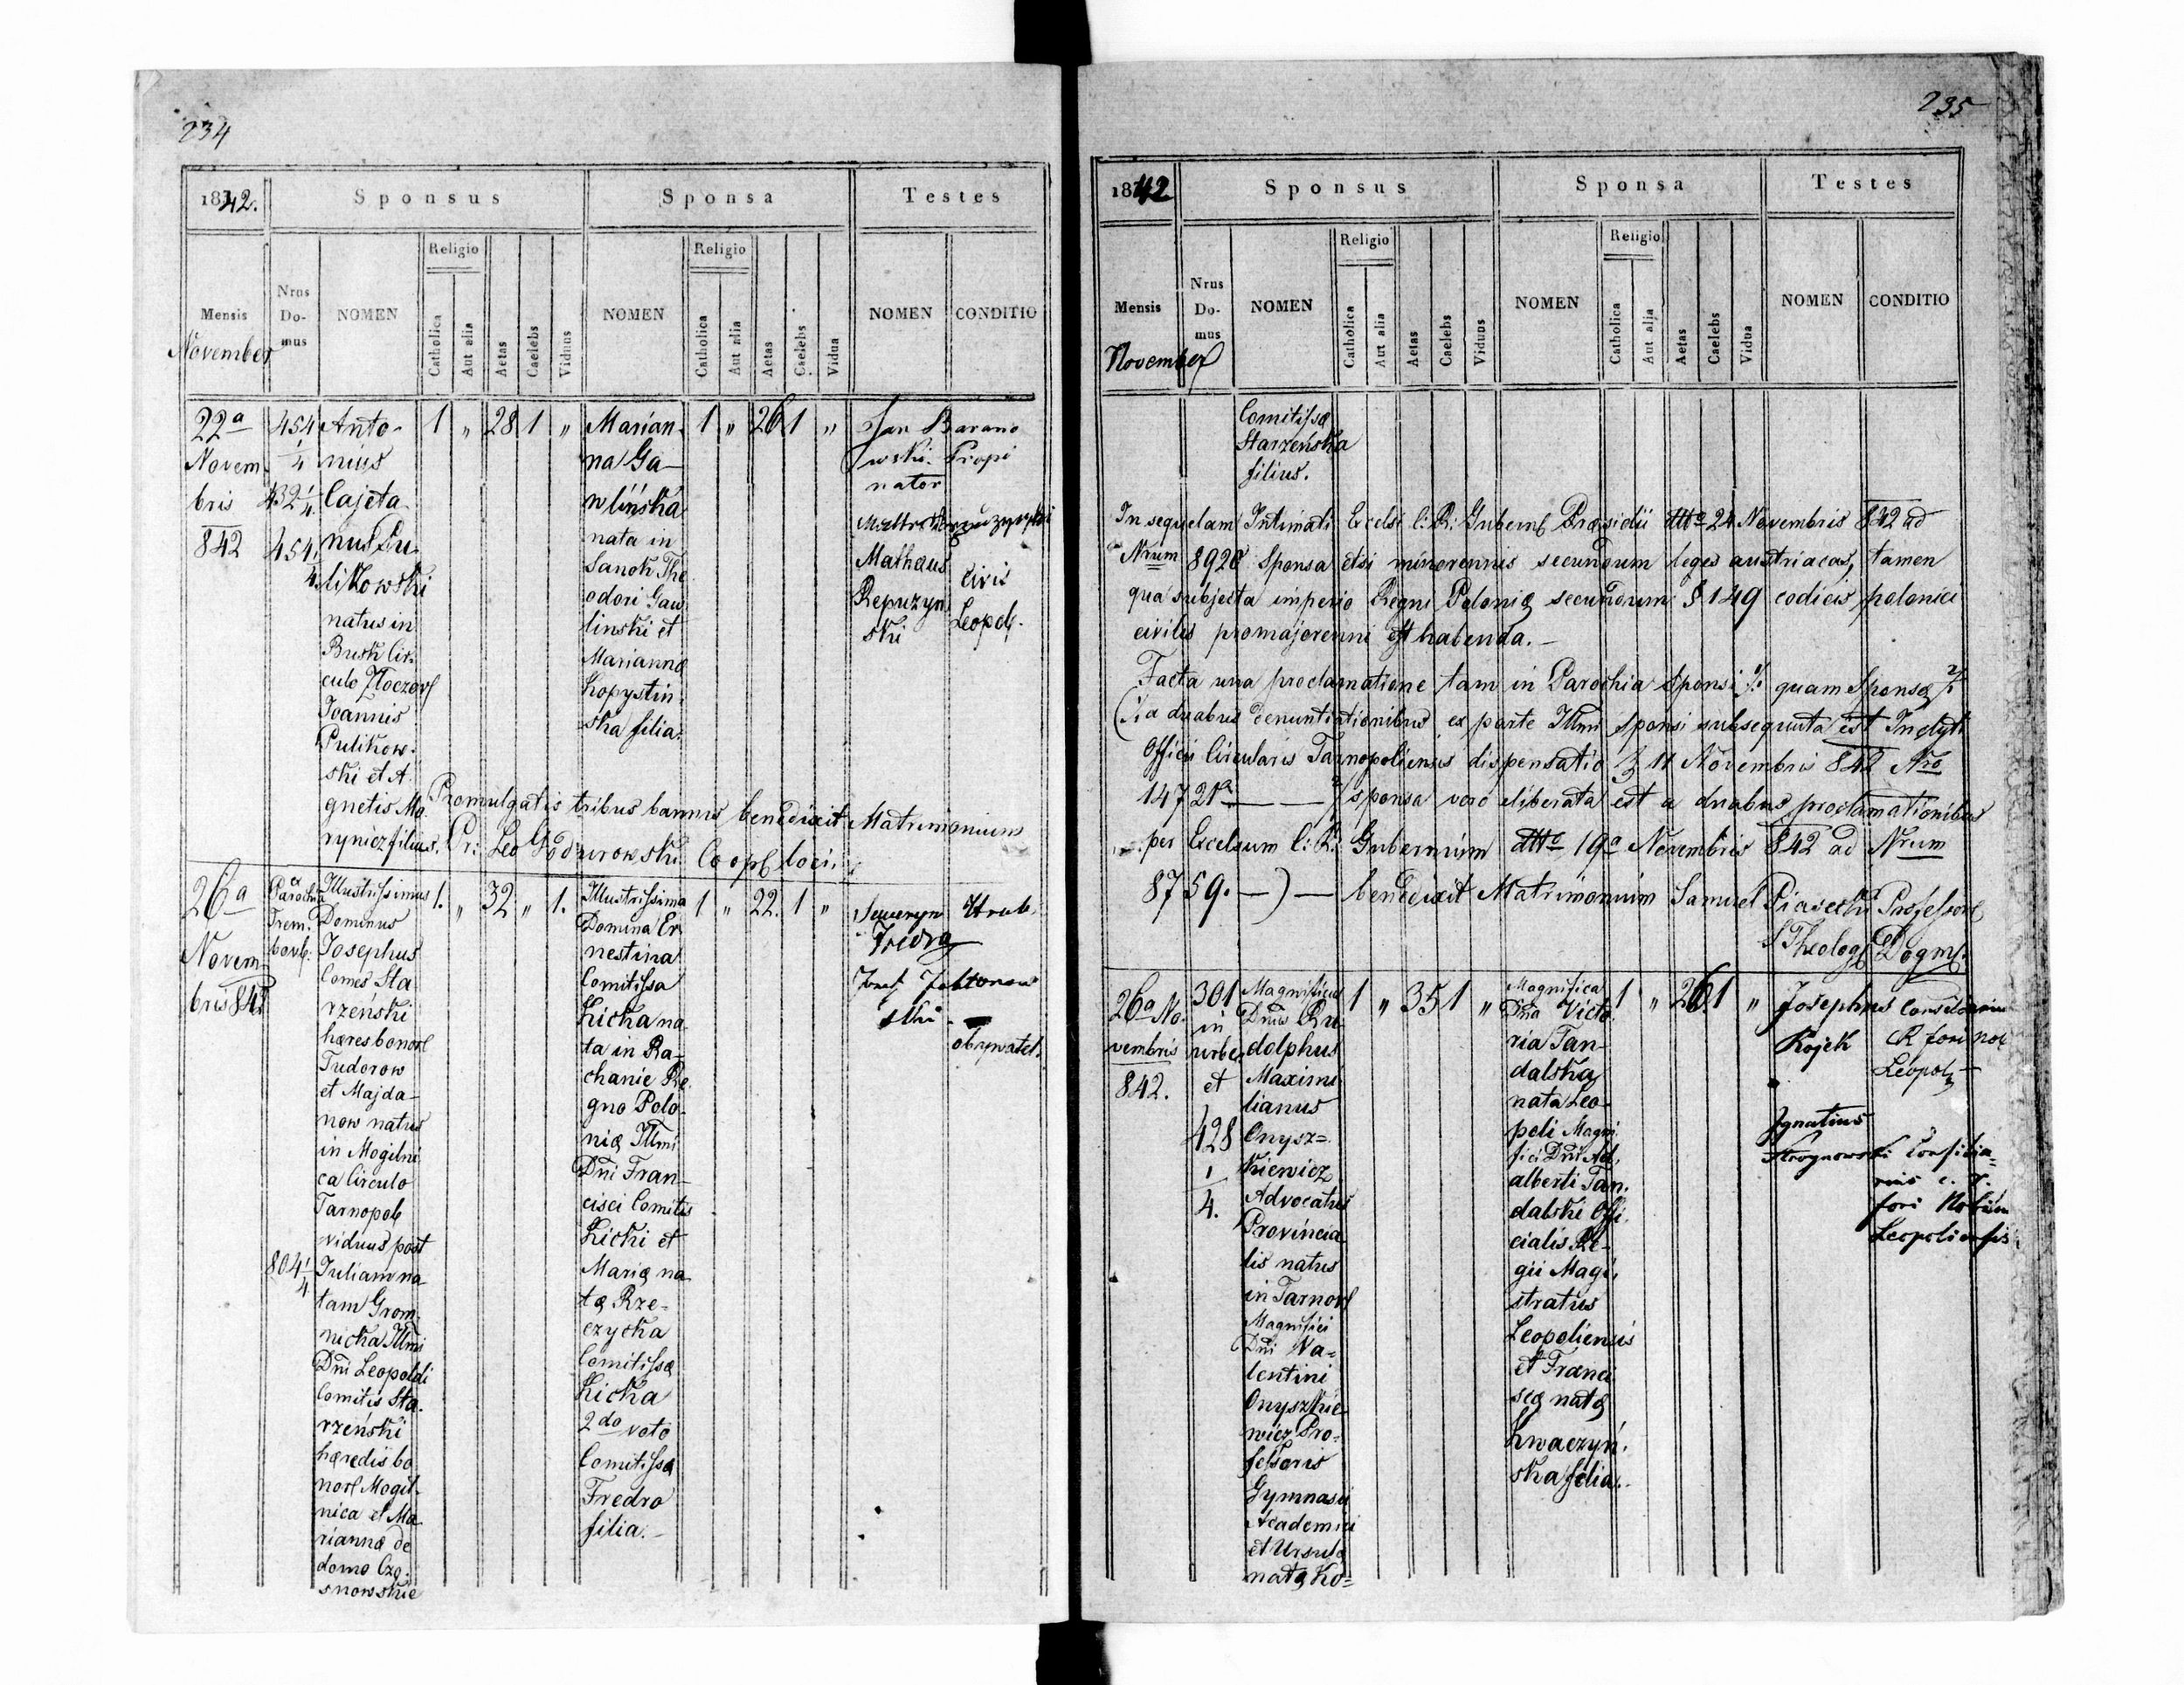 234
1842.
Sponsus
Sponsa
Testes
Mensis
November
Nrus
Do-
mus
NOMEN
Religio
Catholica
Aut alia
Aetas
Caelebs
Viduus
NOMEN
Religio
Catholica
Aut alia
Aetas
Caelebs
Vidua
NOMEN
CONDITIO
22a
Novem
bris
842
454
4
432 1/4
454
4
Anto-
nius
Cajeta
nus Pu
likowski
natus in
Busk Cir
culo Złoczow
Joannis
Pulikow-
ski et A
gnetis Ma
rynicz filius.
1 " 28 1 "
Marian
na Ga-
wlińska
nata in
Sanok The
odori Gaw
linski et
Marianna
Kopystin
ska filia.
1 " 26 1 "
Jan Barano
wski. Propi
nator
Mathaus
Repuzyn
ski
civis
Leopol.
Promulgatis tribus bannis benedixit Matrimonium
Pr: Leo Godurowski Coop loci.
26a
Novem
bris 842
ex
Parochia
Trem
bowl:
804 1/4
Illustrissimus
Dominus
Josephus
Comes Sta
rzeński
hæres bonor
Tudorow
et Majda-
now natus
in Mogilni
ca Circulo
Tarnopol
viduus post
Juliam na
tam Grom
nicka Illmi
Dni Leopoldi
Comitis Sta-
rzeński
hæredis bo
nor Mogil-
nica et Ma
rianna de
domo Czo-
snowskie
1. " 32 " 1.
Illustrissima
Domina Er
nestina
Comitissa
Licka na
ta in Ra-
chanie Re
gno Polo-
nia Illmi
Dni Fran-
cisci Comitis
Licki et
Maria na
ta Rze-
czycka
Comitissa
Licka
2do voto
Comitissa
Fredro
filia.
1 " 22. 1 "
Seweryn Hrab.
Fredro
Józef Jabłonow
ski -
obywatel.
235
1842
Sponsus
Sponsa
Testes
Mensis
November
Nrus
Do-
mus
NOMEN
Religio
Catholica
Aut alia
Aetas
Caelebs
Viduus
NOMEN
Religio
Catholica
Aut alia
Aetas
Caelebs
Vidua
NOMEN
CONDITIO
Comitissa
Starzeńska
filius.
In sequelam Intimati Excelsi C: R: Gubern Præsidii dtto 24 Novembris 842 ad
Nrum 8928 Sponsa etsi minorennis secundum leges austriacas, tamen
qua subjecta imperio Regni Polonia secundum § 149 codicis polonici
civilis pro majorenni est habenda.-
Facta una proclamatione tam in Parochia Sponsi 1/: quam Sponsa 2/:
(1/. a duabus denuntiationibus ex parte Illmi sponsi subsequuta est Inclyti
Officii Circularis Tarnopoliensis dispensatio 11 Novembris 842 Nro
14721 - 2/ sponsa vero eliberata est a duabus proclamationibus
per Excelsum C: R: Gubernium dtto 19a Novembris 842 ad Nrum
8759. -) - benedixit Matrimonium Samuel Piasecki Professor
S Theolog Dogm.
26a No-
vembris
842.
301
in
urbe
et
428
1
4.
Magnificus
Dnus Ru
dolphus
Maximi
lianus
Onysz=
kiewicz
Advocatus
Provincia
lis natus
in Tarnow
Magnifici
Dni Va=
lentini
Onyszkie
wicz Pro=
fessoris
Gymnasii
Academici
et Ursula
nata Ko=
1 " 35 1 "
Magnifica
Dna Victo
ria Tan-
dalska
nata Leo-
poli Magni
fici Dni Ad
alberti Tan
dalski Offi
cialis Re-
gii Magi
stratus
Leopoliensis
et Franci
sca nata
Kwaczyń
ska filia.
1 " 26 1 "
Josephus
Rojek
Consiliarius
R fori nob
Leopol
Ignatius
Strognowski Consilia=
rius c. r.
fori Nobilium
Leopoliensis